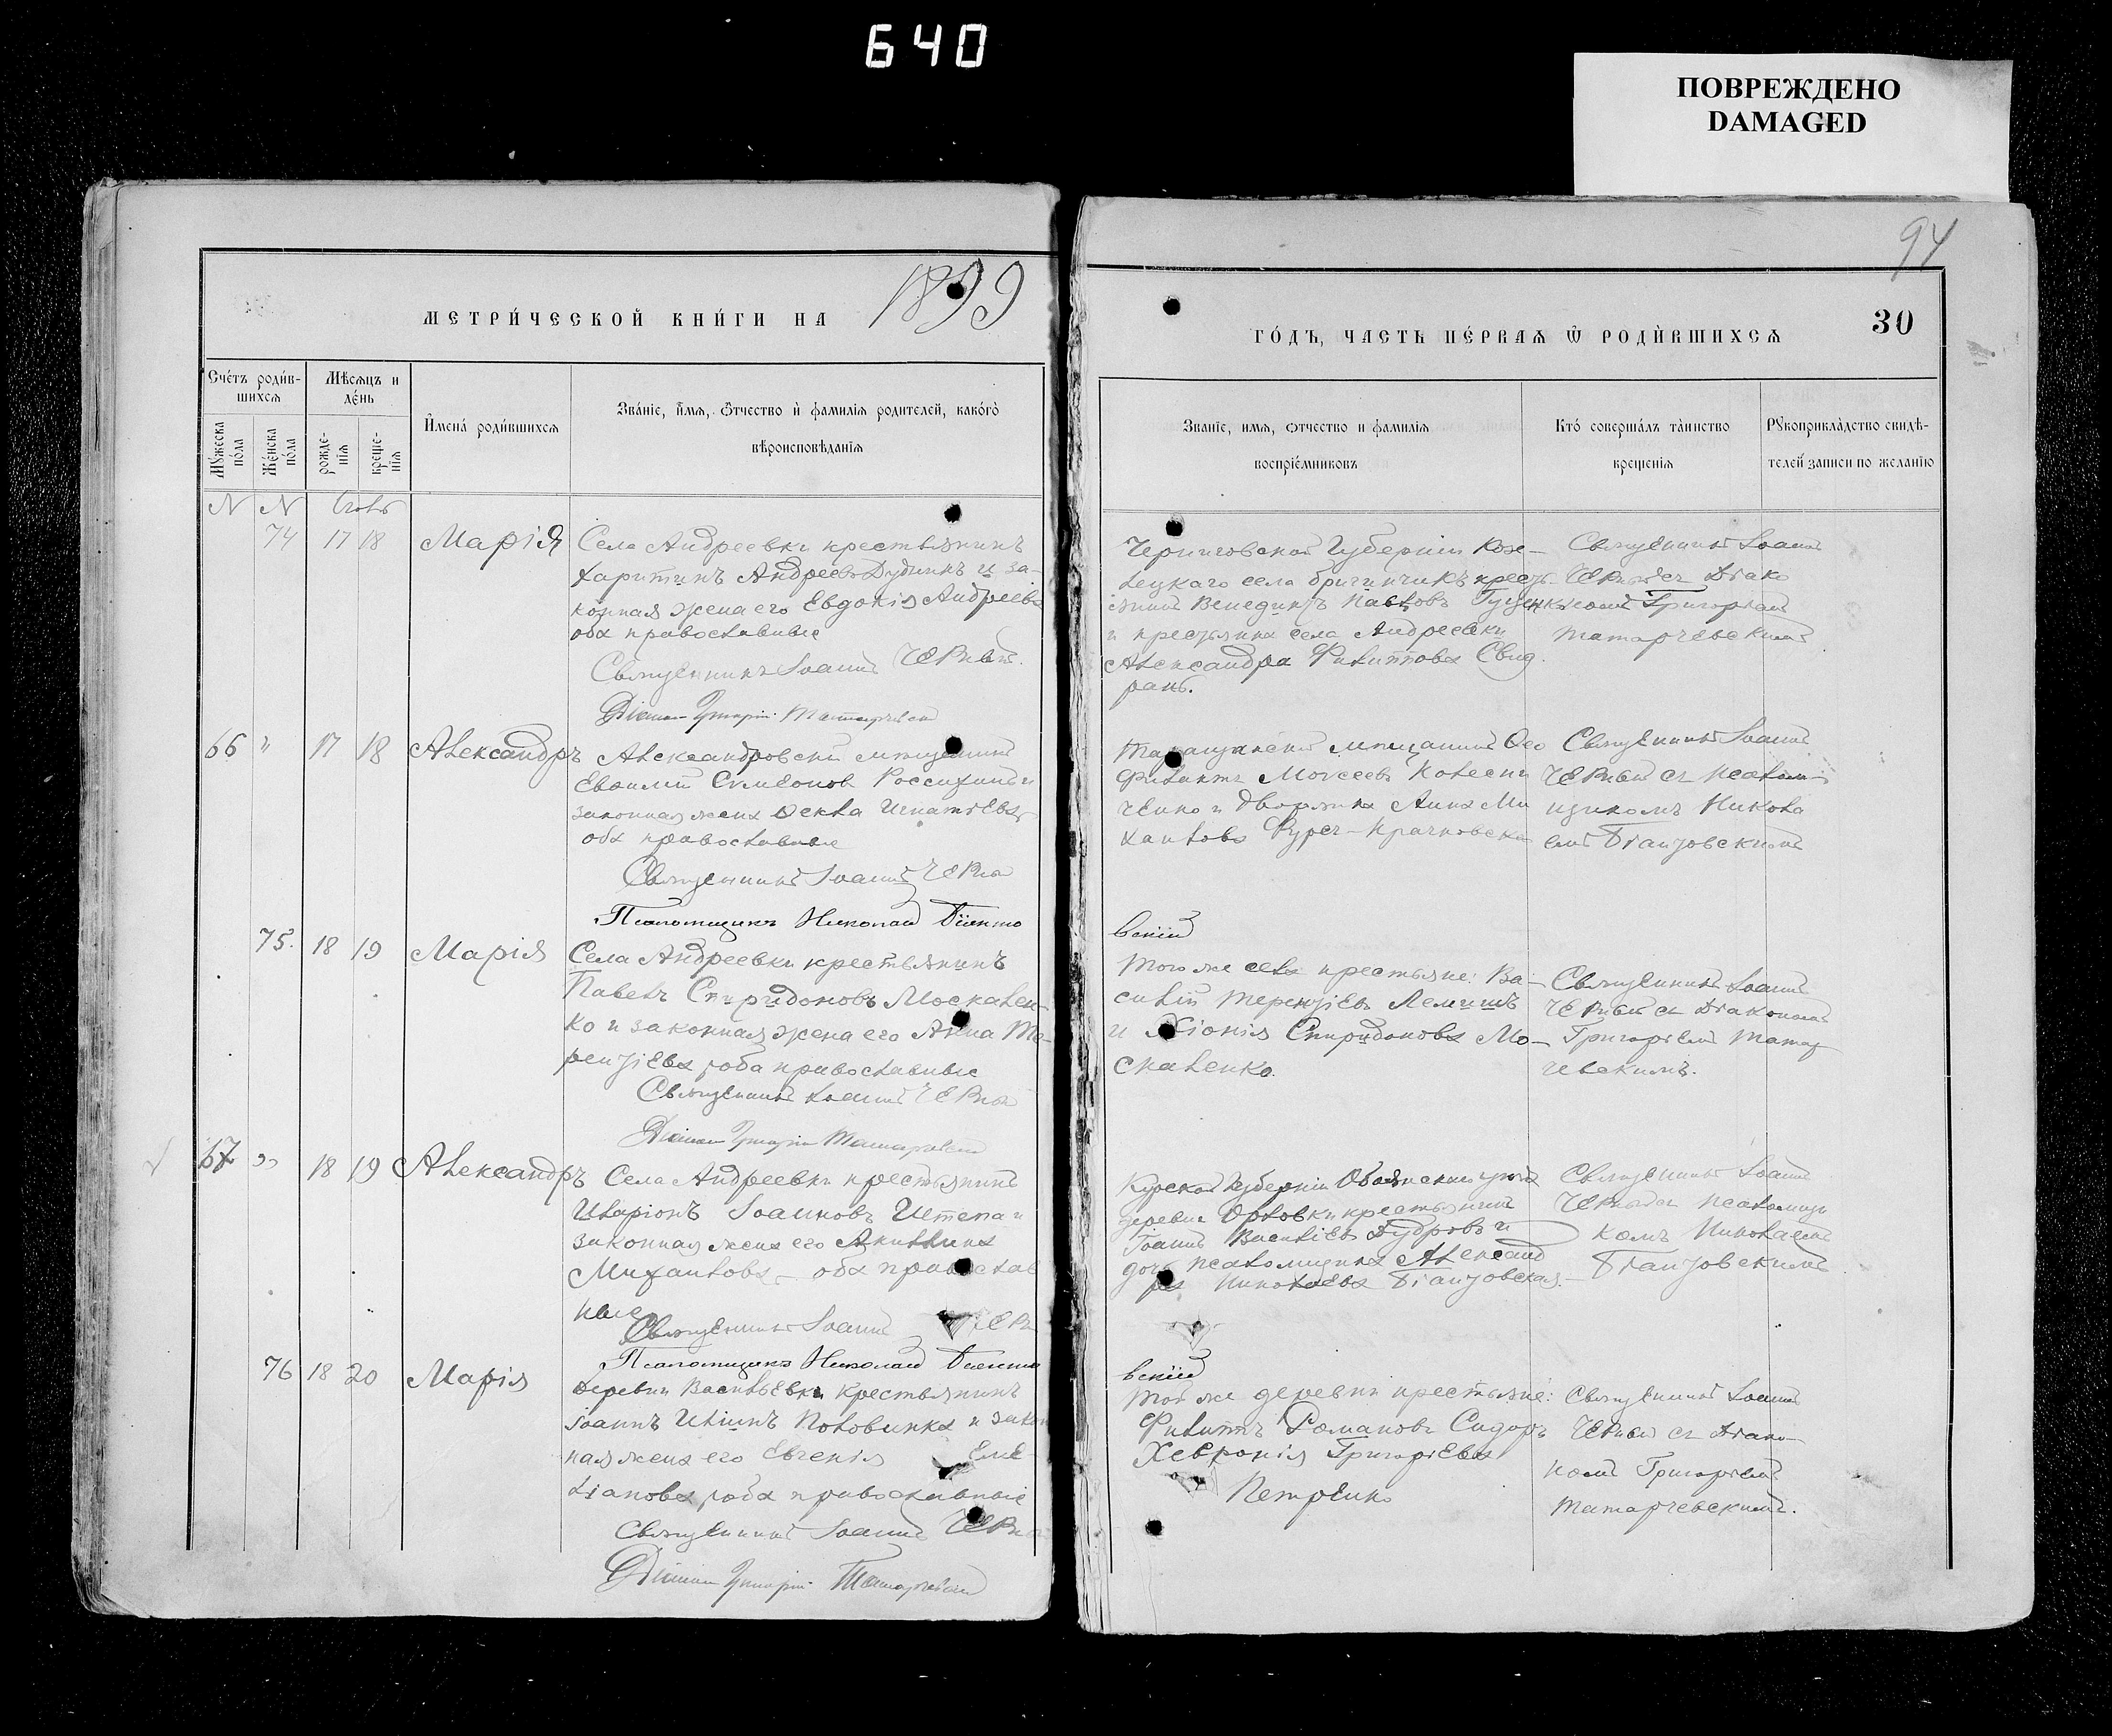 640
ПОВРЕЖДЕНО
DAMAGED
94
МЕТРИ́ЧЕСКОЙ КНИ́ГИ НА 1899
ГО́ДЪ, ЧАСТЬ ПЕ́РВАЯ Ѿ РОДИ́ВШИХСѦ
30
Сче́тъ роди́в-
шихсѧ
Мѣсѧцъ и
де́нь
Мꙋ́жеска
по́ла
Же́нска
по́ла
рожде-
нїѧ
креще-
нїѧ
И҆мена̀ роди́вшихсѧ
Зва́нїе, и҆́мѧ, ѻ҆́тчество и҆ фамилїѧ родителей, како́гѡ
вѣроисповѣданїѧ
Званїе, имѧ, ѻтчество и фамилїѧ
воспрїе́мниковъ
Кто́ соверша́лъ та́инство
крещенїѧ
Рꙋкоприкла́дство свидѣ-
телей записи по желанїю
N N
74 17 18 Марія
Села Андреевки крестьянинъ
Харитинъ Андреевъ Дудникъ и за-
конная жена его Евдокія Андреева
оба православные
Священникъ Іоаннъ Черный.
Діаконъ Григорій Татарчевскій
Черниговской Губерніи Козе-
лецкаго села кресть
Венедиктъ Павловъ
и крестьянка села Андреевки
Александра Филиппова Свид
ранъ.
Священникъ Іоаннъ
Черный съ Діако
номъ Григоріемъ
Татарчевскимъ
66 " 17 18 Александръ
Александровскій мѣщанинъ
Евфимій Симеоновъ и
законная жена Фекла Игнатіева
оба православные
Священникъ Іоаннъ Черный
Псаломщикъ Николай Біянто
Таращанскій мѣщанинъ Ѳео
филактъ Моисеевъ Колесни
ченко и дворянка Анна Ми
хаилова Крачковская
Священникъ Іоаннъ
Черный съ псалом
щикомъ Никола
емъ Біантовскимъ
вскій
75. 18 19 Марія
Села Андреевки крестьянинъ
Павелъ Спиридоновъ Москален-
ко и законная жена его Анна Те-
рентіева, оба православные
Священникъ Іоаннъ Черный
Діаконъ Григорій Татарчевскій
Того же села крестьяне: Ва-
силій Терентіевъ Лемишъ
и Хіонія Спиридонова Мо-
скаленко.
Священникъ Іоаннъ
Черный съ Діакономъ
Григоріемъ Татар
чевскимъ.
67 " 18 19 Александръ
Села Андреевки крестьянинъ
Иларіонъ Іоанновъ и
законная жена его Акилина
Михаилова, оба православ
ные
Священникъ Іоаннъ Черн
Псаломщикъ Николай Біянто
Курской Губерніи Обоянскаго уѣзда
деревни Орловки крестьянинъ
Іоаннъ Василіевъ и
дочь псаломщика Александ
ра Николаева Біантовская.
Священникъ Іоаннъ
Черный съ псаломщи
комъ Николаемъ
Біантовскимъ
вскій
76 18 20 Марія
Деревни Васильевки крестьянинъ
Іоаннъ Иліинъ Половинка и закон
ная жена его Евгенія Еме-
ліанова, оба православные
Священникъ Іоаннъ Черный
Діаконъ Григорій Татарчевскій
Той же деревни крестьяне:
Филиппъ Романовъ Сидоръ
Хевронія Григоріева
Петренко
Священникъ Іоаннъ
Черный съ Діако-
номъ Григоріемъ
Татарчевскимъ.